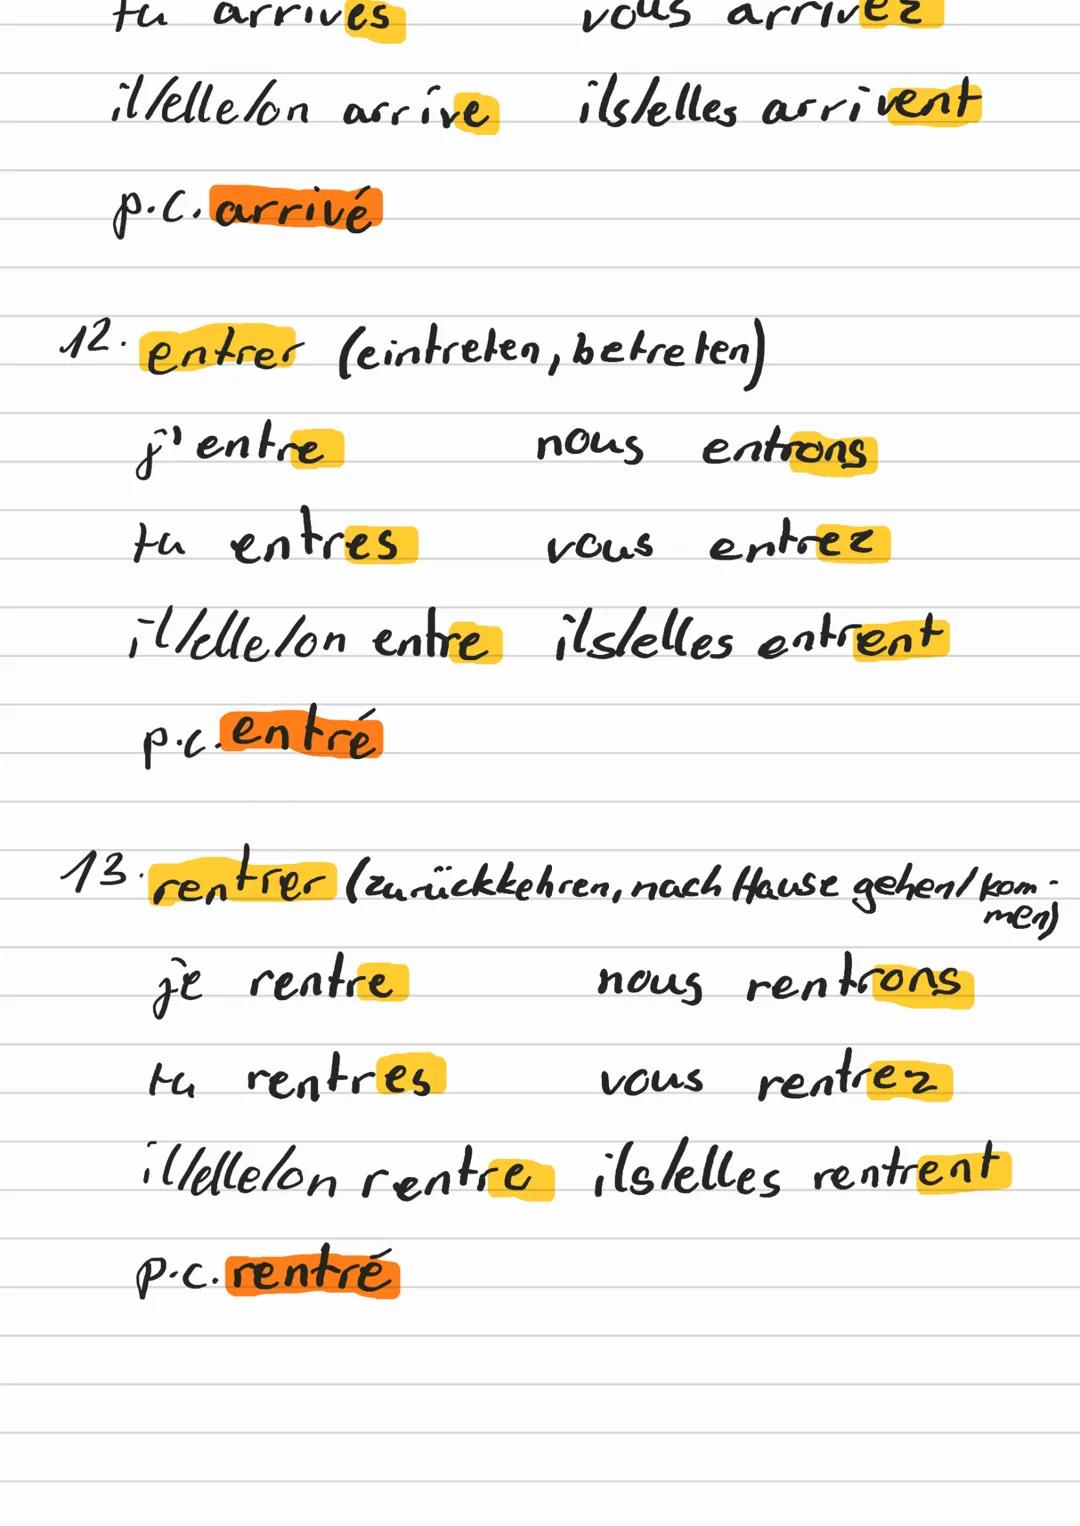 tu arrives vous arrivez
il/elle/on arrive ils/elles arrivent
p.c. arrivé
12. entrer (eintreten, betreten)
j'entre nous entrons
tu entres vous entrez
il/elle/on entre ils/elles entrent
p.c. entré
13. rentrer (zurückkehren, nach Hause gehen/kom-
men)
je rentre nous rentrons
tu rentres vous rentrez
il/elle/on rentre ils/elles rentrent
p.c. rentré